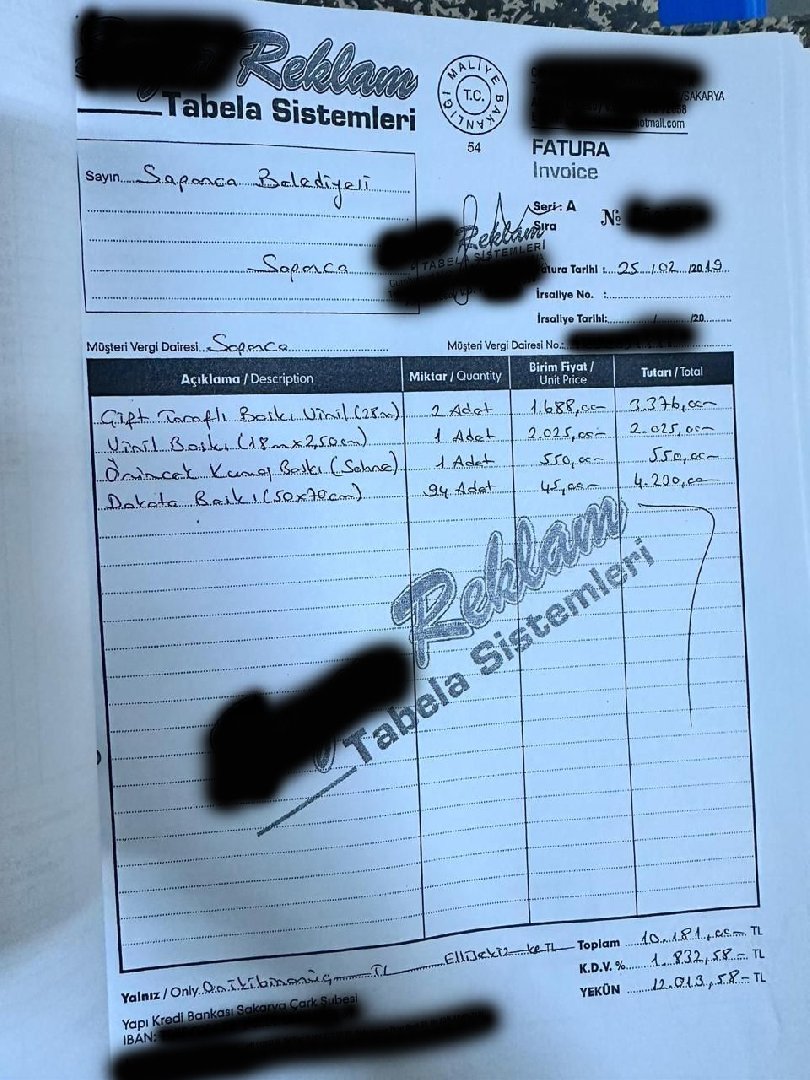 Reklam
Tabela Sistemleri
MALİYE BAKANLIĞI
T.C.
54
/SAKARYA
hotmail.com
FATURA
Invoice
Sayın Sapanca Belediyesi
Sapanca
Seri: A
Sıra
№
Reklam
TABELA SİSTEMLERİ
Fatura Tarihi : 25/02/2019
İrsaliye No. :
İrsaliye Tarihi: / /20
Müşteri Vergi Dairesi Sapanca
Müşteri Vergi Dairesi No.:
Açıklama / Description Miktar / Quantity Birim Fiyat / Unit Price Tutarı / Total
Çift Taraflı Baskı Vinil (28m) 2 Adet 1.688,00 3.376,00
Vinil Baskı (18mx2,50cm) 1 Adet 2.025,00 2.025,00
Baskı (Sahne) 1 Adet 550,00 550,00
Dakota Baskı (50x70cm) 94 Adet 45,00 4.230,00
Reklam
Tabela Sistemleri
Yalnız / Only Onikibinonüç TL
Toplam 10.181,00 TL
K.D.V. % 1.832,58 TL
YEKÜN 12.013,58 TL
Yapı Kredi Bankası Sakarya Çark Şubesi
IBAN: